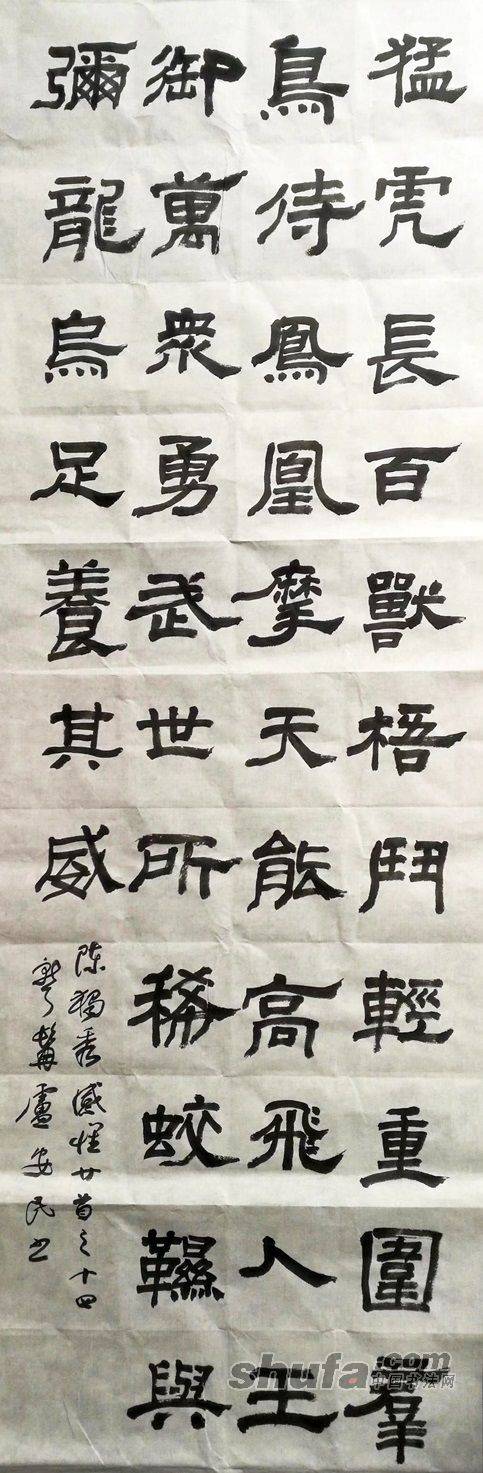 猛虎長百獸梧鬥輕重圍羣
鳥待鳳凰摩天能高飛人王
御萬衆勇武世所稀蛟韅與
彌龍烏足養其威
陈獨秀感怀廿首之十四
髯盧安民书
shufa.com
中国书法网